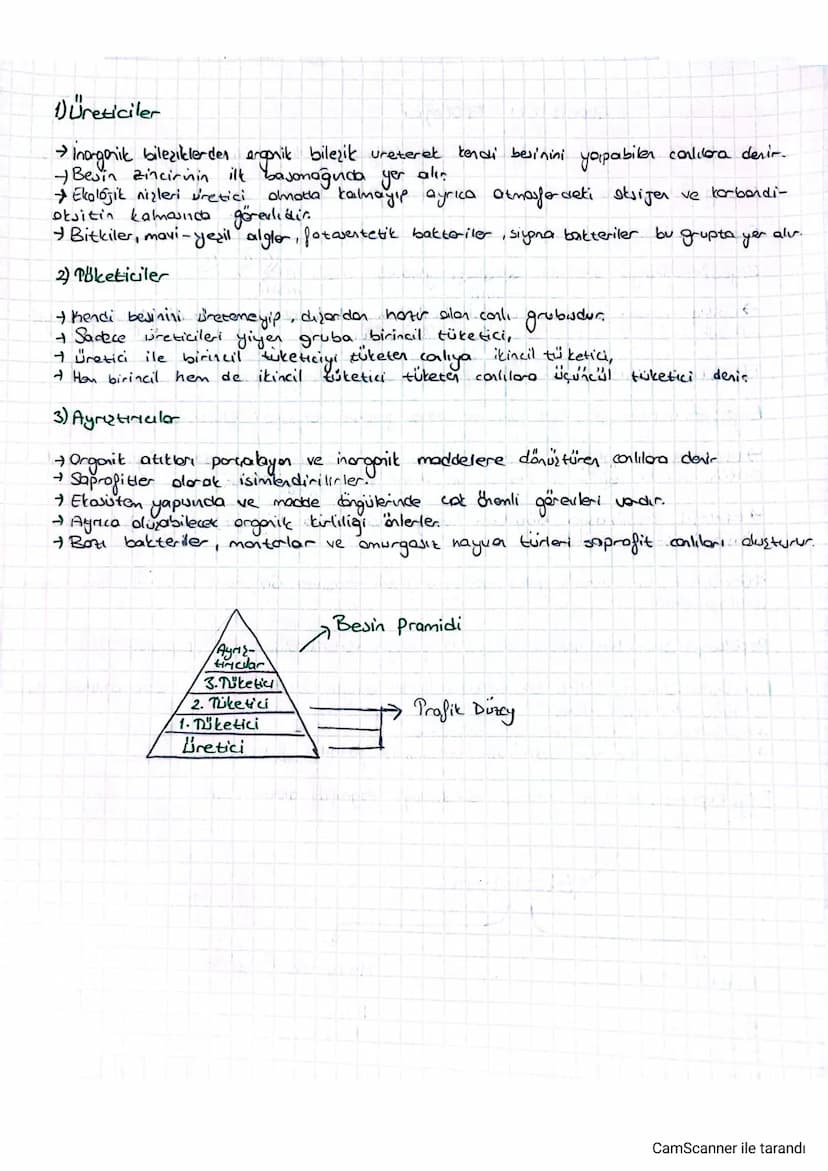 1) Üreticiler
→ İnorganik bileziklerden organik bilezik üreterek kendi besinini yapabilen canlılara denir.
→ Besin zincirinin ilk basamağında yer alır.
→ Ekolojik nizleri üretici olmakla kalmayıp ayrıca atmosferdeki oksijen ve karbondi-
oksitin kalmasında görevlidir.
→ Bitkiler, mavi-yeşil algler, fotosentetik bakteriler, siyona bakteriler bu grupta yer alır.
2) Tüketiciler
→ Kendi besinini üretemeyip, dışardan hazır alan canlı grubudur.
→ Sadece üreticileri yiyen gruba birincil tüketici,
→ Üretici ile birincil tüketiciyi tüketen canlıya ikincil tüketici,
→ Hem birincil hem de ikincil tüketici tüketen canlılara üçüncül tüketici denir.
3) Ayrıştırıcılar
→ Organik atıkları parçalayan ve inorganik maddelere dönüştüren canlılara denir
→ Saprofitler olarak isimlendirilirler.
→ Ekosistem yapısında ve madde döngülerinde çok önemli görevleri vardır.
→ Ayrıca oluşabilecek organik kirliliği önlerler.
→ Bazı bakteriler, mantarlar ve omurgasız hayvan türleri saprofit canlıları oluşturur.
Besin Pramidi
Ayrış-
tırıcılar
3. Tüketici
2. Tüketici
1. Tüketici
Üretici
Trofik Düzey
CamScanner ile tarandı